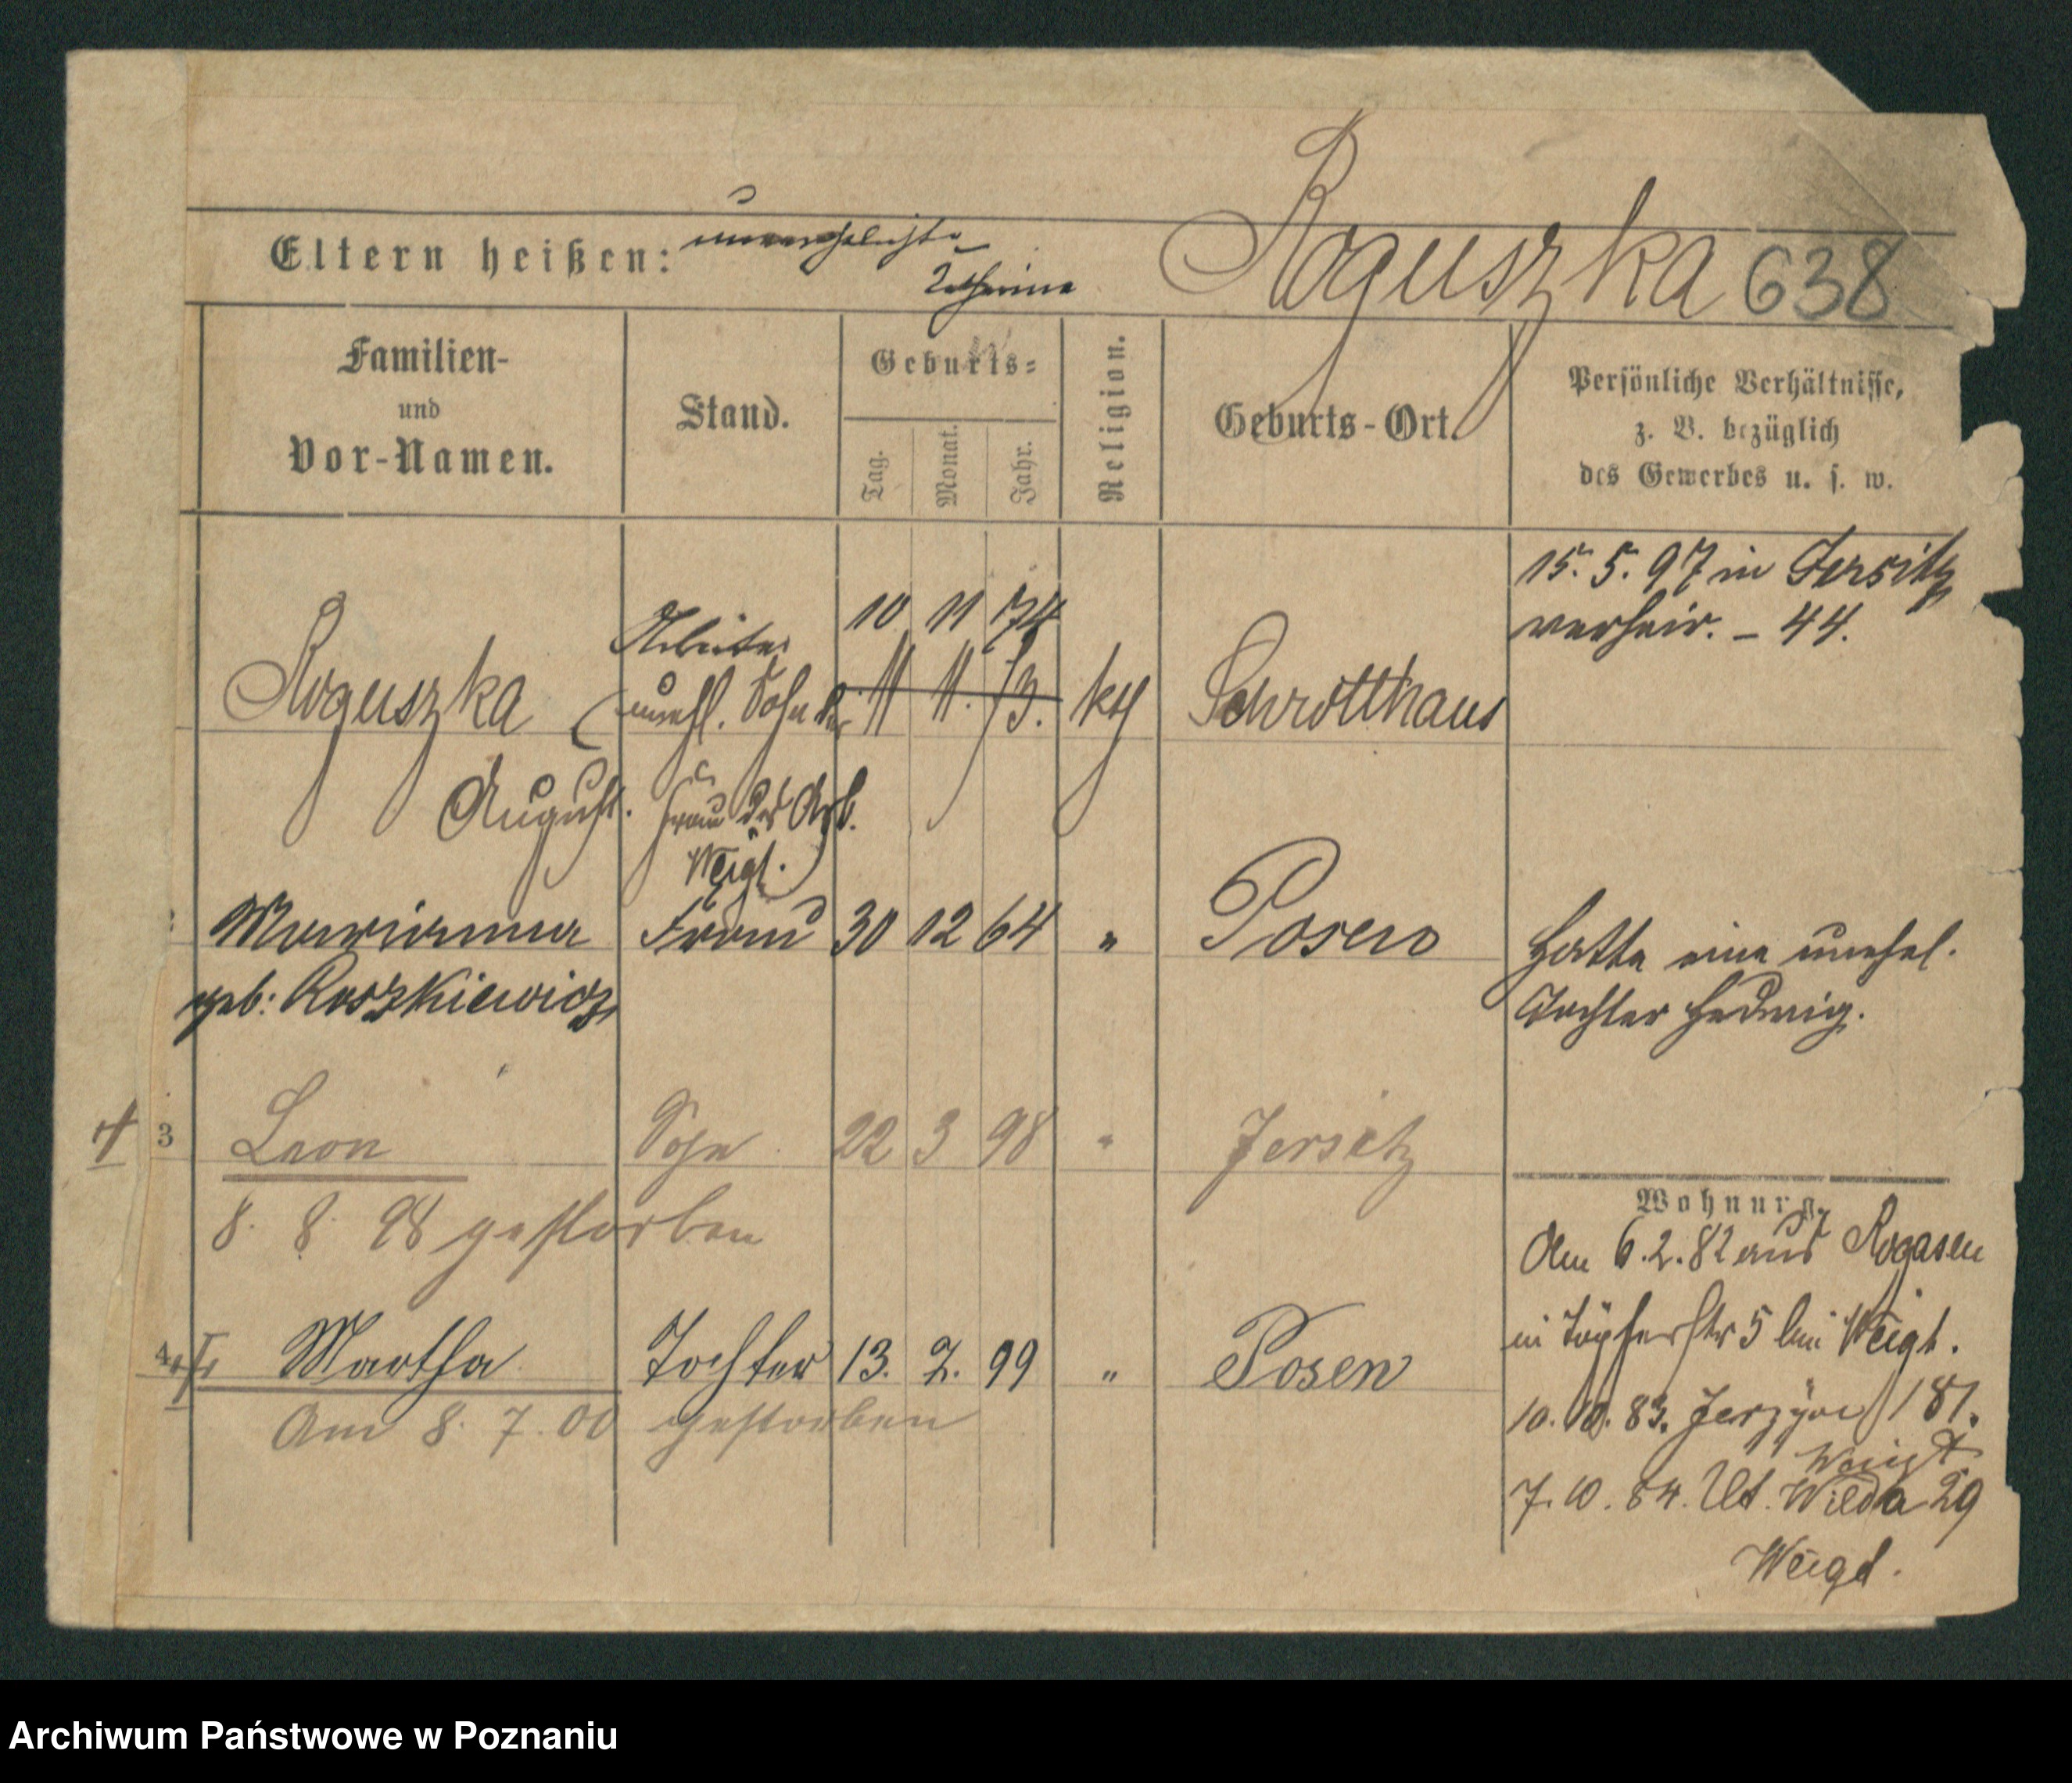 Eltern heißen: unverehelichte
Catharina
Roguszka 638
Familien-
und
Vor-Namen.
Stand.
Geburts-
Tag.
Monat.
Jahr.
Religion.
Geburts-Ort.
Persönliche Verhältnisse,
z. B. bezüglich
des Gewerbes u. s. w.
15. 5. 97 in Jersitz
verheir. - 44.
Arbeiter 10 11 74
Roguszka (unehl. Sohn der 11 11. 73. kth Schrotthaus
August. Frau des Arb.
Weigt.
Marianna Frau 30 12 64 " Posen
geb: Roszkiewicz
Hatte eine unehel.
Tochter Hedwig.
3 Leon Sohn 22 3 98 " Jersitz
8. 8. 98 gestorben
Wohnung.
Am 6.2.82 aus Rogasen
in Töpferstr 5 bei Weigt.
4 Martha Tochter 13. 2. 99 " Posen
Am 8. 7. 00 gestorben
10. 10. 83. Jerzyce 181.
Weigt
7. 10. 84. Ut. Wilda 29
Weigt.
Archiwum Państwowe w Poznaniu